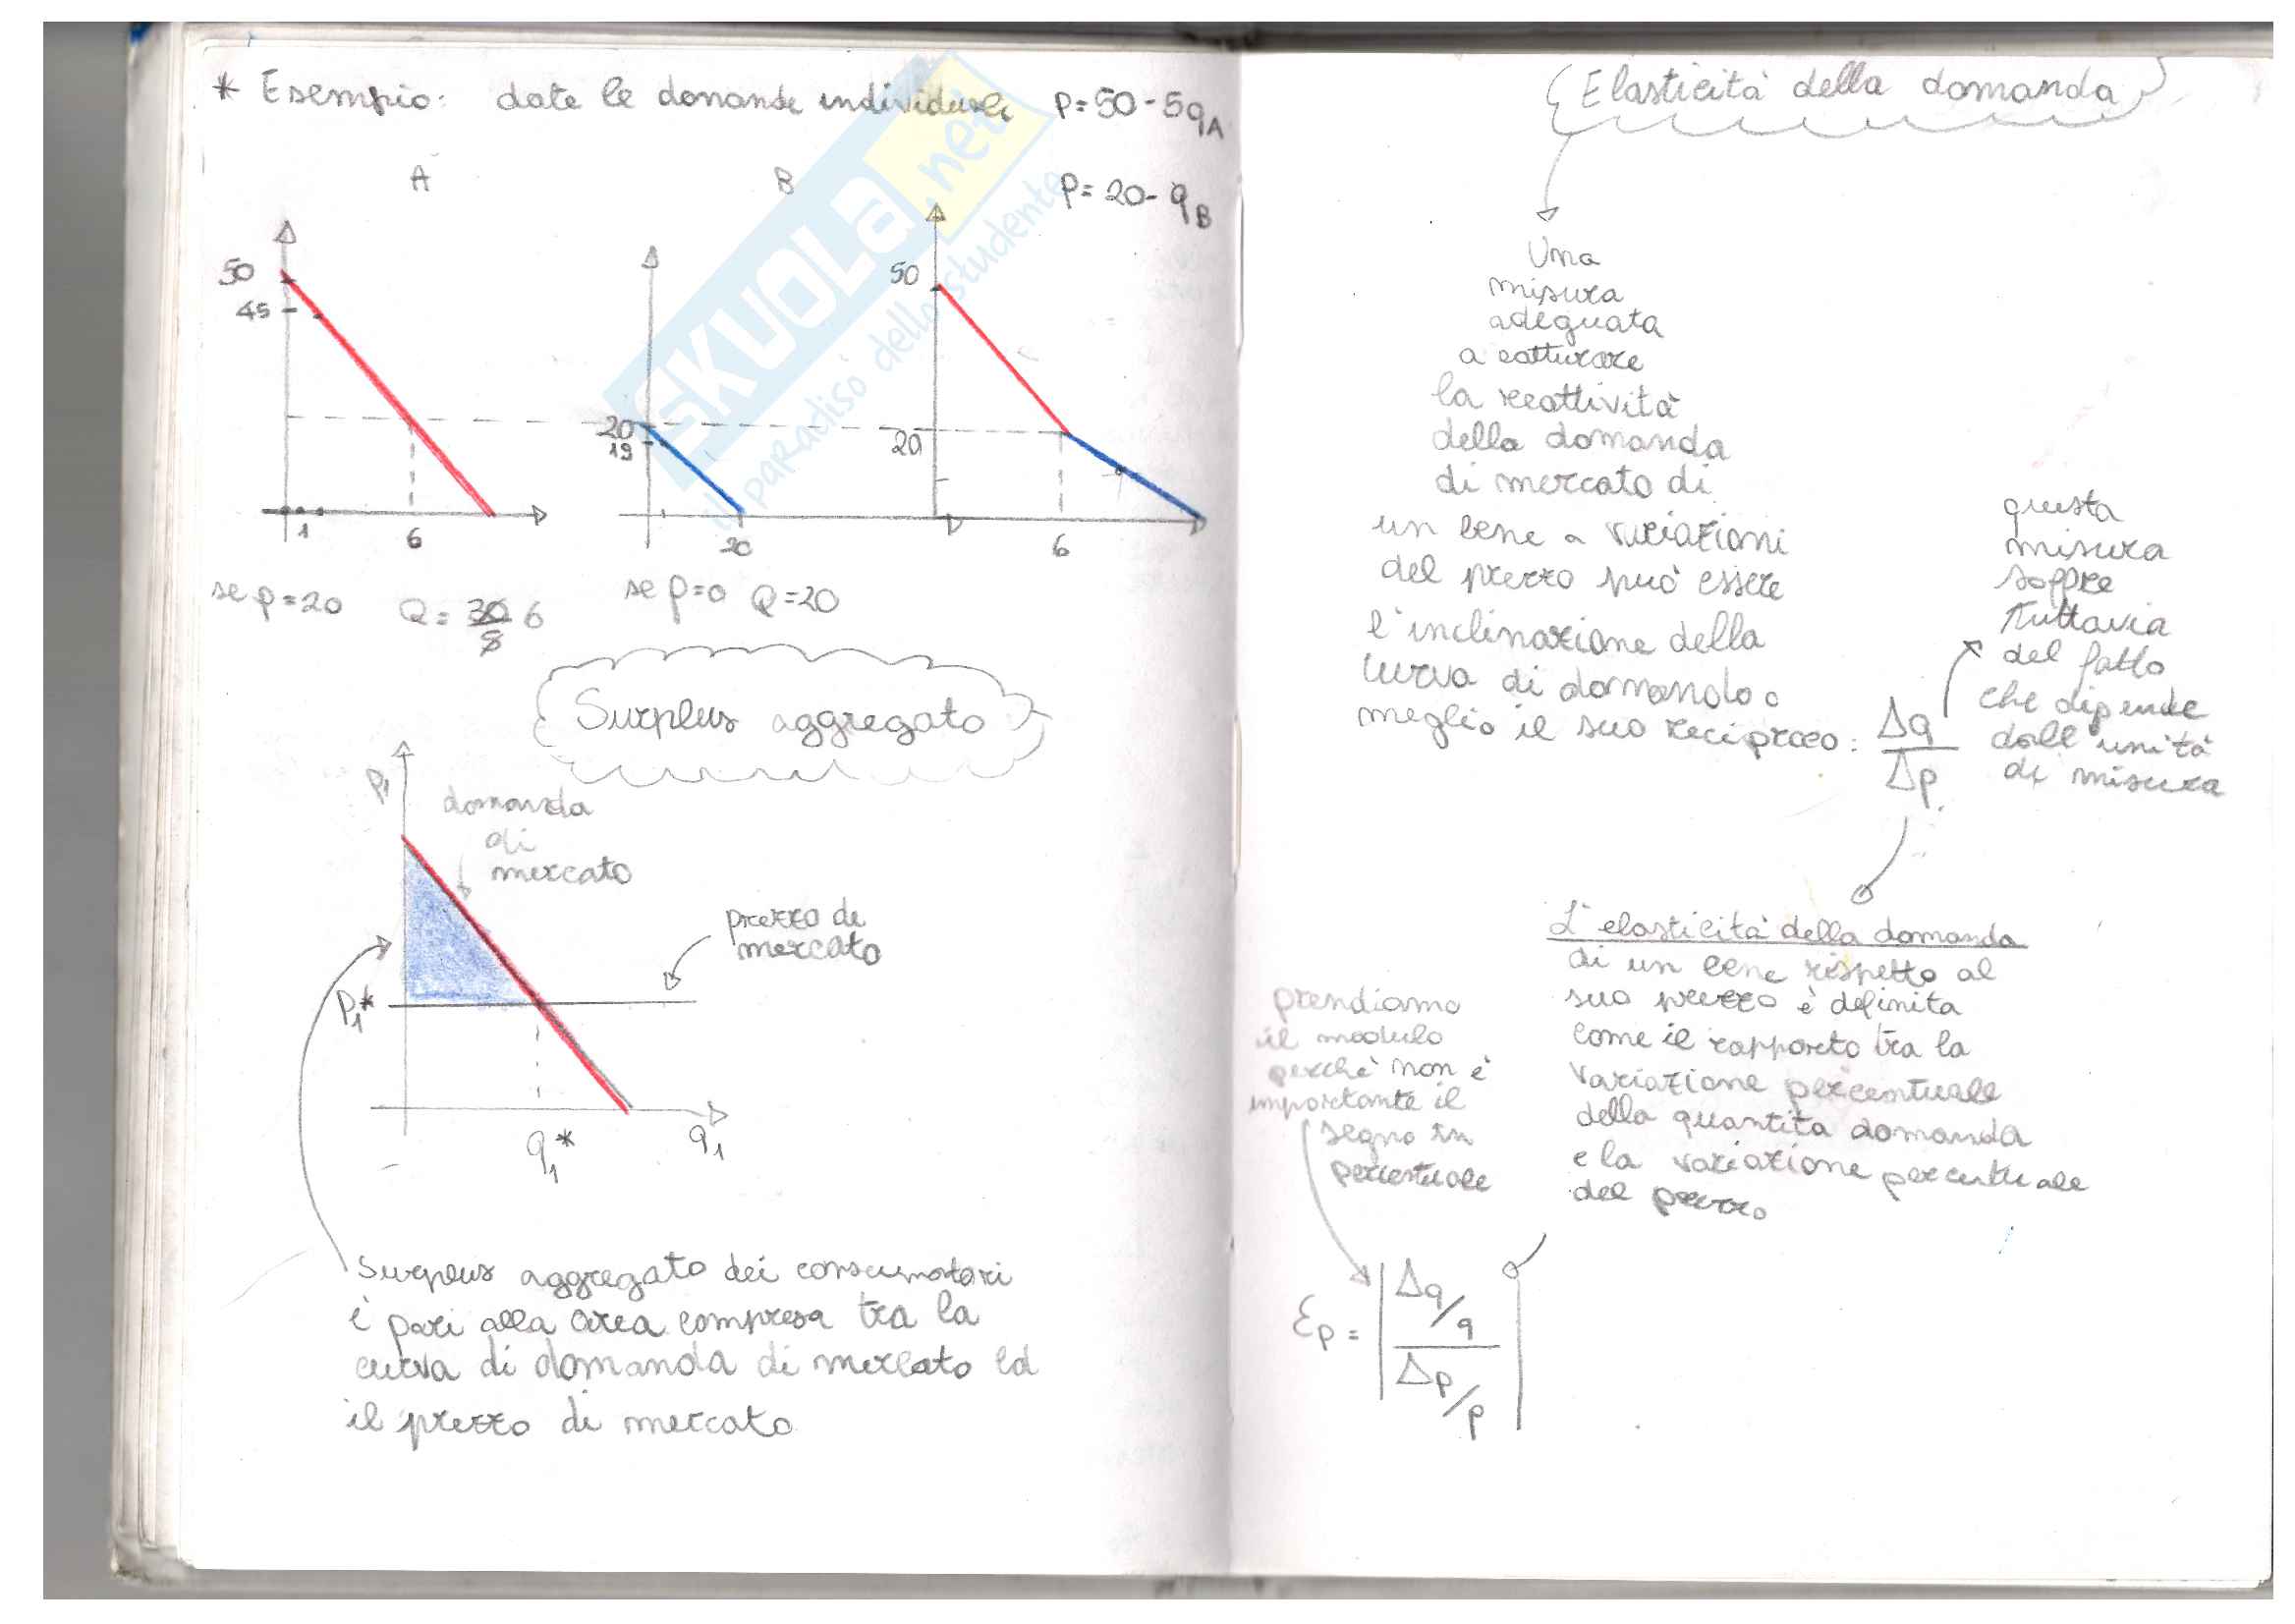 * Esempio: date le domande individuali p=50-5qA
A B p=20-qB
50
45
1
6
20
19
20
50
20
6
se p=20 Q=30/5 6
se p=0 Q=20
Surplus aggregato
p1
domanda
di
mercato
prezzo di
mercato
p1*
q1*
q1
Surplus aggregato dei consumatori
è pari alla area compresa tra la
curva di domanda di mercato ed
il prezzo di mercato
SKUOLa.net
il paradiso dello studente
Elasticità della domanda
Una
misura
adeguata
a catturare
la reattività
della domanda
di mercato di
un bene a variazioni
del prezzo può essere
l'inclinazione della
curva di domanda o
meglio il suo reciproco: Δq/Δp
questa
misura
soffre
tuttavia
del fatto
che dipende
dall'unità
di misura
L'elasticità della domanda
di un bene rispetto al
suo prezzo è definita
come il rapporto tra la
variazione percentuale
della quantità domanda
e la variazione percentuale
del prezzo
prendiamo
il modulo
perchè non è
importante il
segno in
percentuale
Ɛp = | Δq/q / Δp/p |